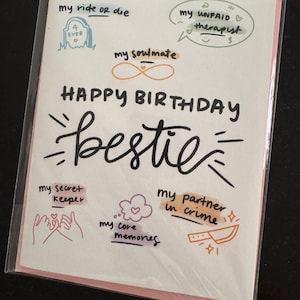 my ride or die
4
EVER
my UNPAID
therapist
my soulmate
HAPPY BIRTHDAY
bestie
my secret
keeper
my core
memories
my partner
in crime